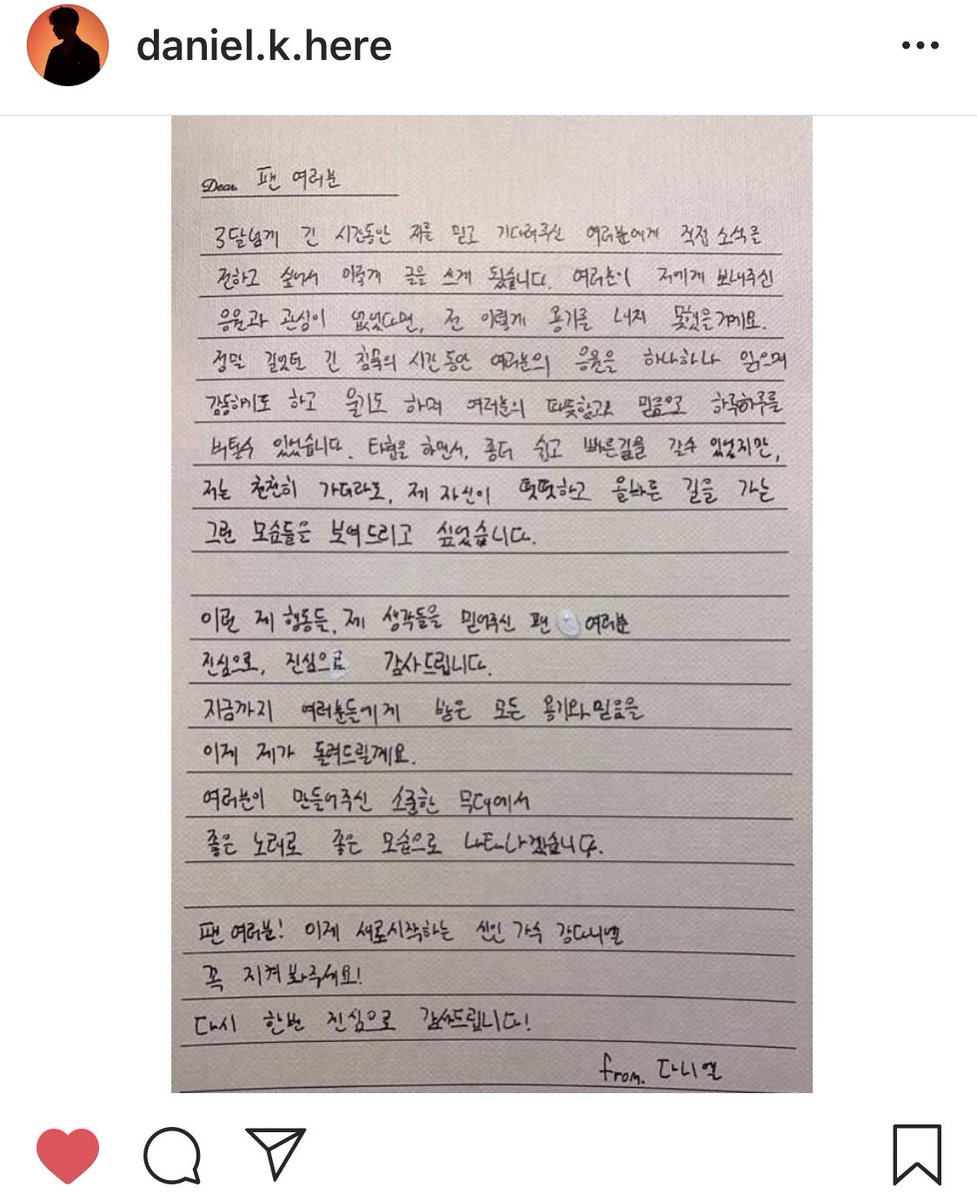 daniel.k.here
Dear. 팬 여러분
3달넘게 긴 시간동안 저를 믿고 기다려주신 여러분에게 직접 소식을
전하고 싶어서 이렇게 글을 쓰게 됐습니다. 여러분이 저에게 보내주신
응원과 관심이 없었다면, 전 이렇게 용기를 내지 못했을거예요.
정말 길었던 긴 침묵의 시간동안 여러분의 응원을 하나하나 읽으며
감동하기도 하고 울기도 하며 여러분의 따뜻함과 믿음으로 하루하루를
버틸수 있었습니다. 타협을 하면서, 좀더 쉽고 빠른길을 갈수 있었지만,
저는 천천히 가더라도, 제 자신이 떳떳하고 올바른 길을 가는
그런 모습들을 보여드리고 싶었습니다.
이런 제 행동들, 제 생각들을 믿어주신 팬 여러분
진심으로, 진심으로 감사드립니다.
지금까지 여러분들에게 받은 모든 용기와 믿음을
이제 제가 돌려드릴게요.
여러분이 만들어주신 소중한 무대에서
좋은 노래로 좋은 모습으로 나타나겠습니다.
팬 여러분! 이제 새로시작하는 신인 가수 강다니엘
꼭 지켜봐주세요!
다시 한번 진심으로 감사드립니다!
from. 다니엘